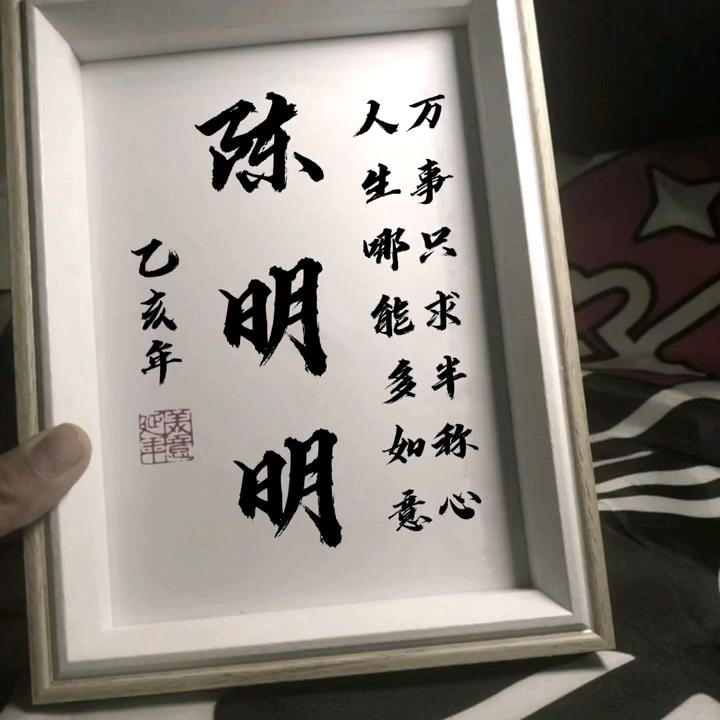 万事只求半称心
人生哪能多如意
陈明明
乙亥年
美意
延年